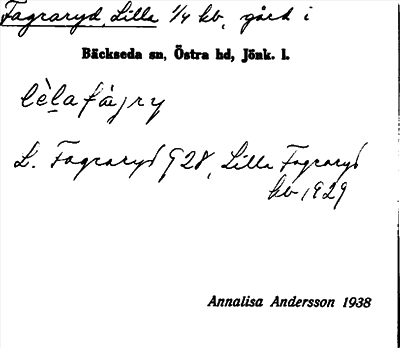 Fagraryd, Lilla 1/4 kb, gård i
Bäckseda sn, Östra hd, Jönk. l.
lèla fájry
L. Fagraryd G28, Lilla Fagraryd
kb 1929
Annalisa Andersson 1938